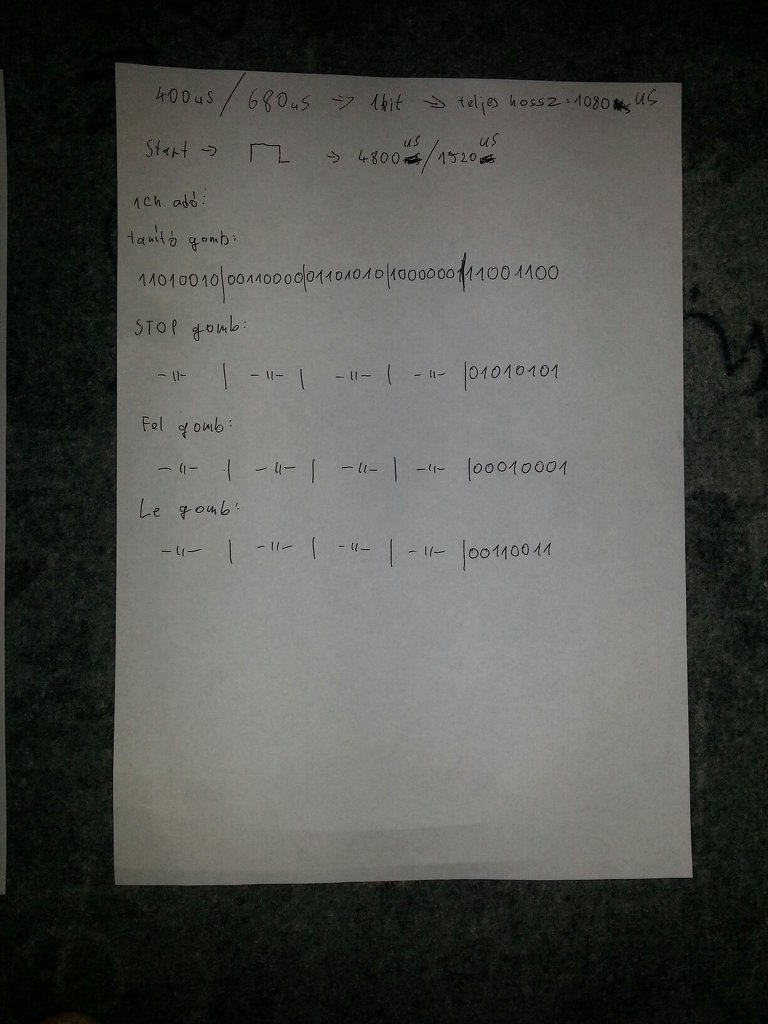 400us / 680us => 1bit => teljes hossz: 1080 us
Start -> -> 4800 us / 1520 us
1ch adó:
tanító gomb:
11010010|00110000|01101010|10000001|11001100
STOP gomb:
-"- | -"- | -"- | -"- |01010101
Fel gomb:
-"- | -"- | -"- | -"- |00010001
Le gomb:
-"- | -"- | -"- | -"- |00110011